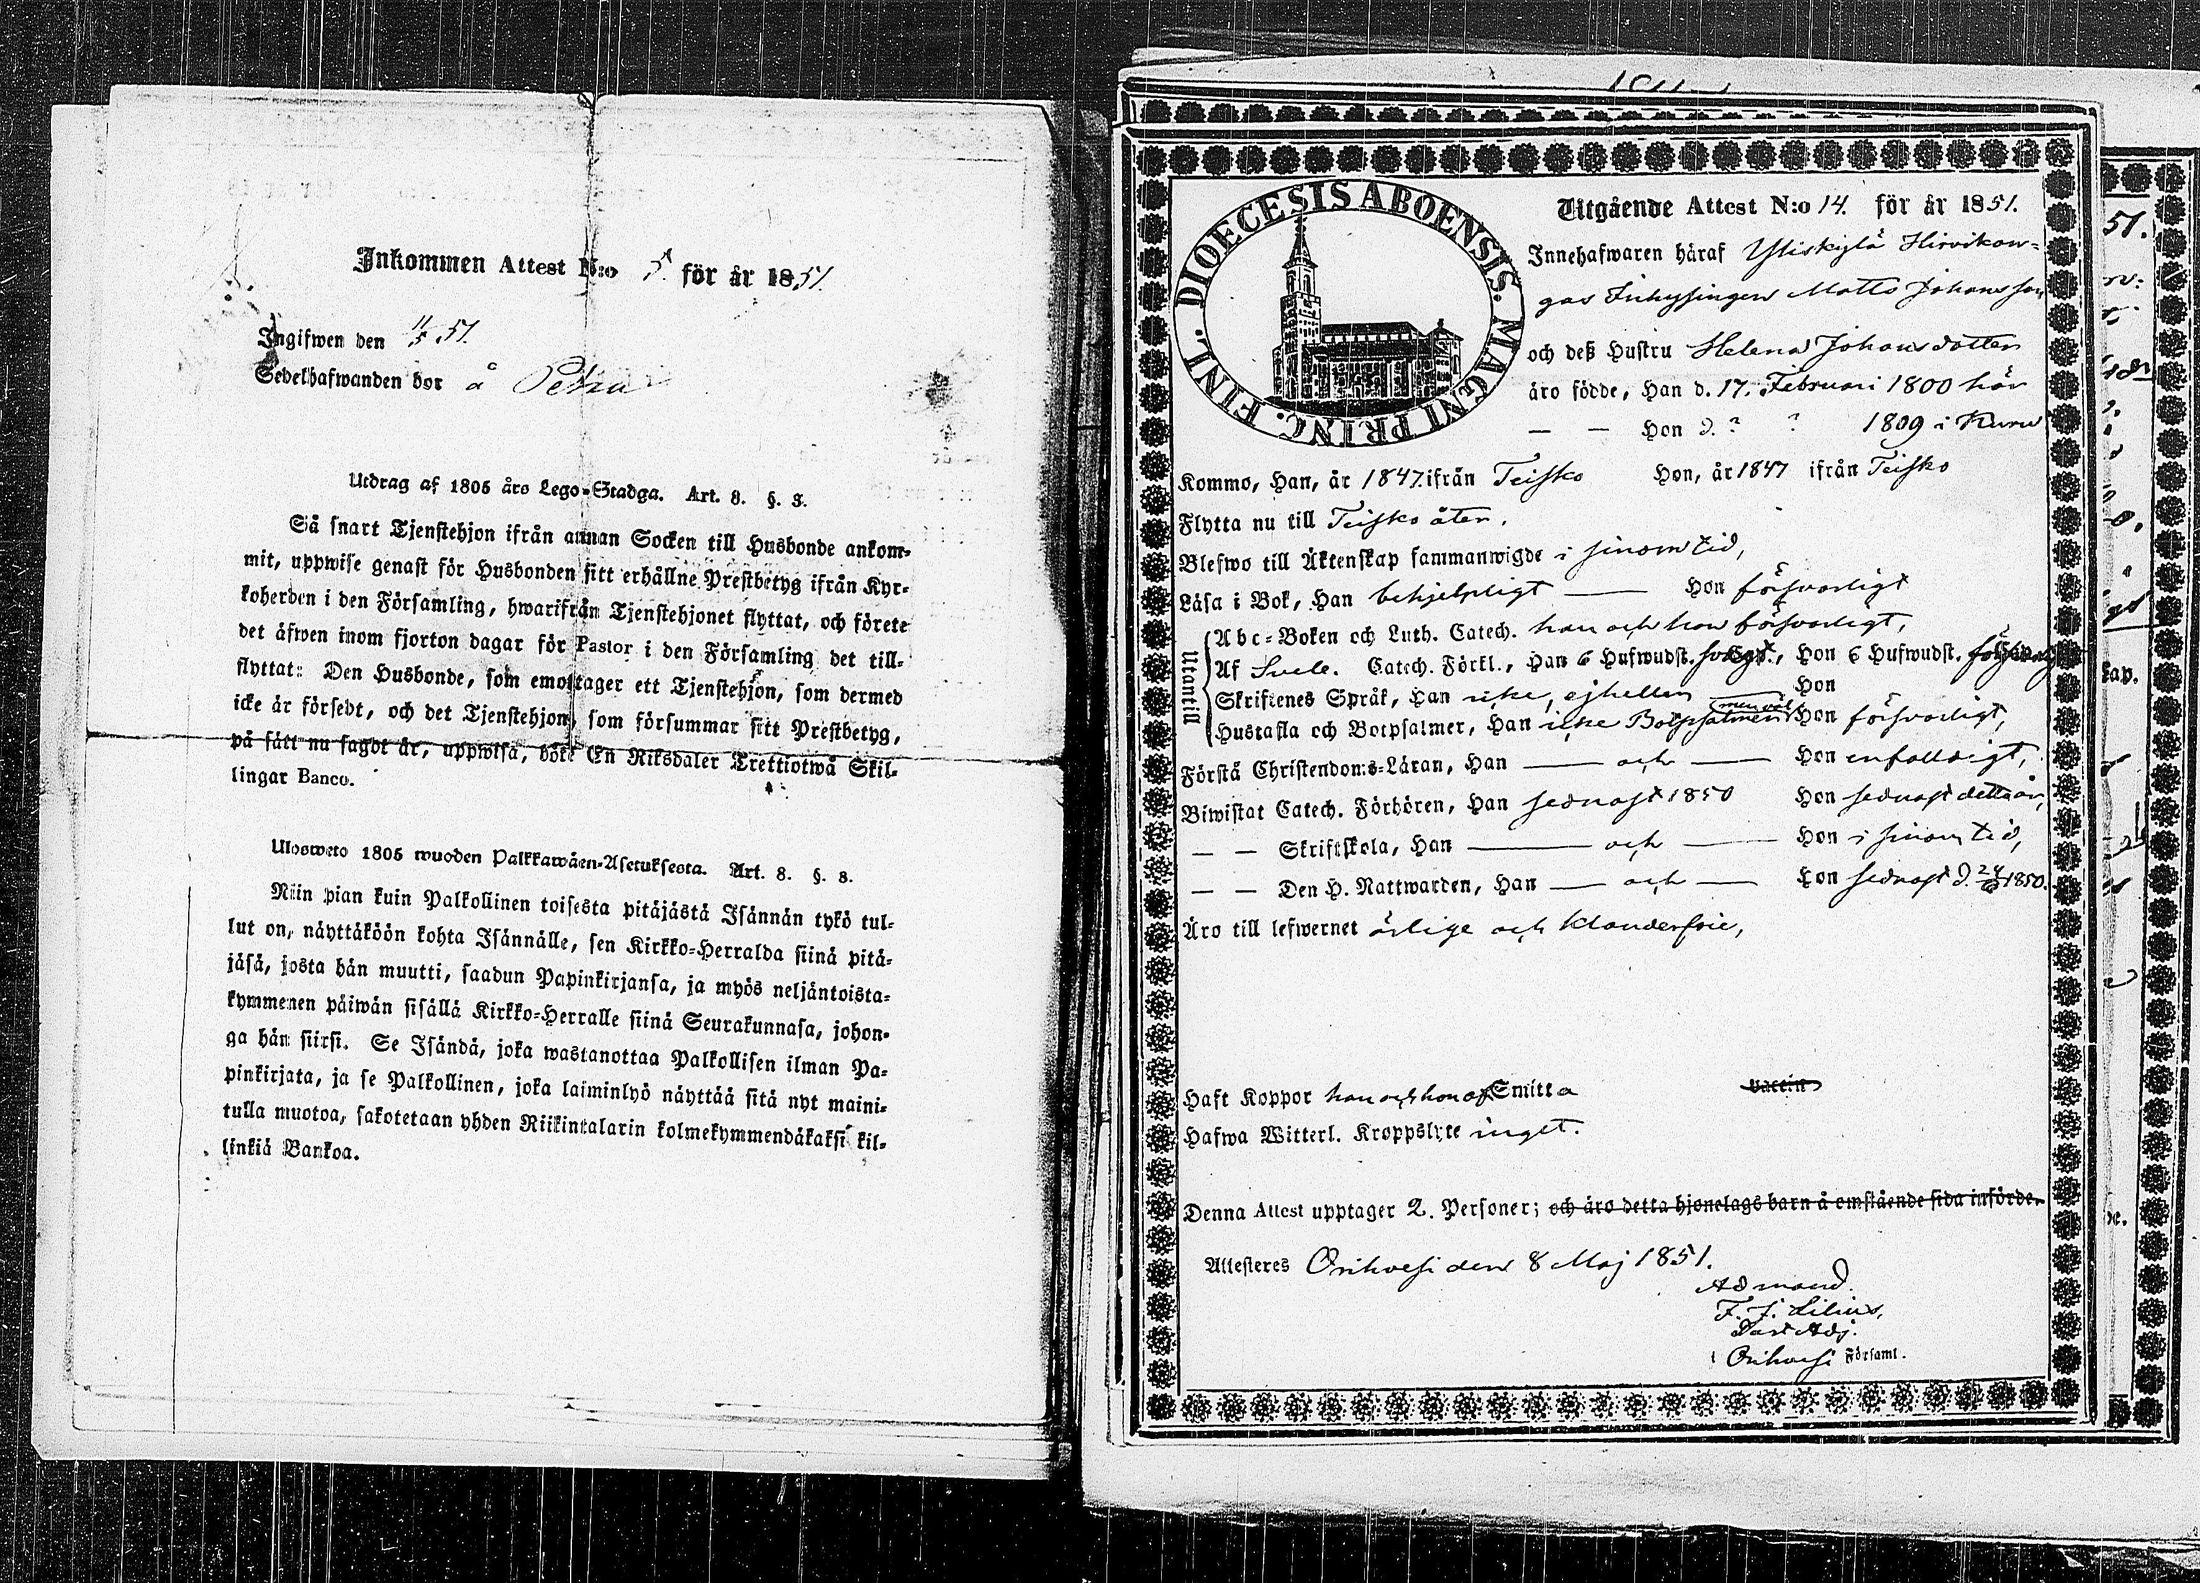 Inkommen Attest N:o 5. för år 1851.
Ingifwen den 11/5 51.
Sedelhafwanden bor å Petra
Utdrag af 1805 års Lego-Stadga. Art. 8. §. 8.
Så snart Tjenstehjon ifrån annan Socken till Husbonde ankom-
mit, uppwise genast för Husbonden sitt erhållne Prestbetyg ifrån Kyr-
koherden i den Församling, hwarifrån Tjenstehjonet flyttat, och förete
det äfwen inom fjorton dagar för Pastor i den Församling det till-
flyttat: Den Husbonde, som emottager ett Tjenstehjon, som dermed
icke är försedt, och det Tjenstehjon, som försummar sitt Prestbetyg,
på sätt nu sagdt är, uppwisa, böte En Riksdaler Trettiotwå Skil-
lingar Banco.
Ulosweto 1805 wuoden Palkkawäen-Asetuksesta. Art. 8. §. 8.
Niin pian kuin Palkollinen toisesta pitäjästä Isännän tykö tul-
lut on, näyttäköön kohta Isännälle, sen Kirkko-Herralda siinä pitä-
jäsä, josta hän muutti, saadun Papinkirjansa, ja myös neljäntoista-
kymmenen päiwän sisällä Kirkko-Herralle siinä Seurakunnasa, johon-
ga hän siirsi. Se Isändä, joka wastanottaa Palkollisen ilman Pa-
pinkirjata, ja se Palkollinen, joka laiminlyö näyttää sitä nyt maini-
tulla muotoa, sakotetaan yhden Riikintalarin kolmekymmendäkaksi kil-
linkiä Bankoa.
DIOECESIS ABOENSIS. MAGNI PRINC. FINL.
Utgående Attest N:o 14. för år 1851.
Innehafwaren häraf Yliskylä Hirvikan-
gas Inhysingen Matts Johansson
och deß Hustru Helena Johansdotter
äro födde, Han d. 17. Februari 1800 här
— — Hon d. ? ? 1809 i Kuru
Kommo, Han, år 1847 ifrån Teisko Hon, år 1847 ifrån Teisko
Flytta nu till Teisko åter.
Blefwo till Äktenskap sammanwigde i sinom tid,
Läsa i Bok, Han behjelpligt — Hon försvarligt
Utantill
Abc-Boken och Luth. Catech. han och hon försvarligt,
Af Svebe. Catech. Förkl., Han 6 Hufwudst. Hon 6 Hufwudst.
Skriftenes Språk, Han icke, ejheller — Hon
Hustafla och Botpsalmer, Han icke Botpsalmer Hon försvarligt,
Första Christendoms-Läran, Han — och — Hon enfaldigt,
Biwistat Catech. Förhören, Han sednast 1850 Hon sednast detta år,
— — Skriftskola, Han — och — Hon i sinom tid,
— — Den H. Nattwarden, Han — och — Hon sednast d. 1850.
Äro till lefwernet ärlige och klanderfrie,
Haft Koppor han och hon af Smitta vaccin
Hafwa Witterl. Kroppslyte inget.
Denna Attest upptager 2. Personer; och äro detta hjonelags barn å omstående sida införde.
Attesteres Orihvesi den 8 Maj 1851.
Ad mand.
F. J. Lilius,
Past Adj.
i Orihvesi Församl.